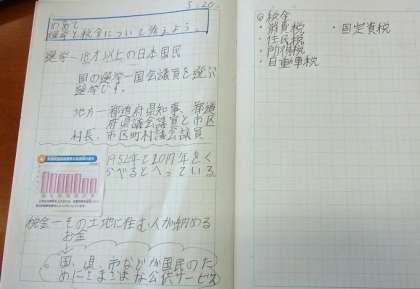 5.20
めあて
選挙と税金について考えよう。
選挙－18才以上の日本国民
国の選挙－国会議員を選ぶ
選挙です。
地方－都道府県知事、都道
府県議会議員と市区
村長、市区町村議会議員
1952年と2017年をく
らべるとへっている。
税金－その土地に住む人が納める
お金
国、県、市などが国民のた
めにさまざまな公共サービス
◎税金
・消費税
・固定資税
・住民税
・所得税
・自動車税